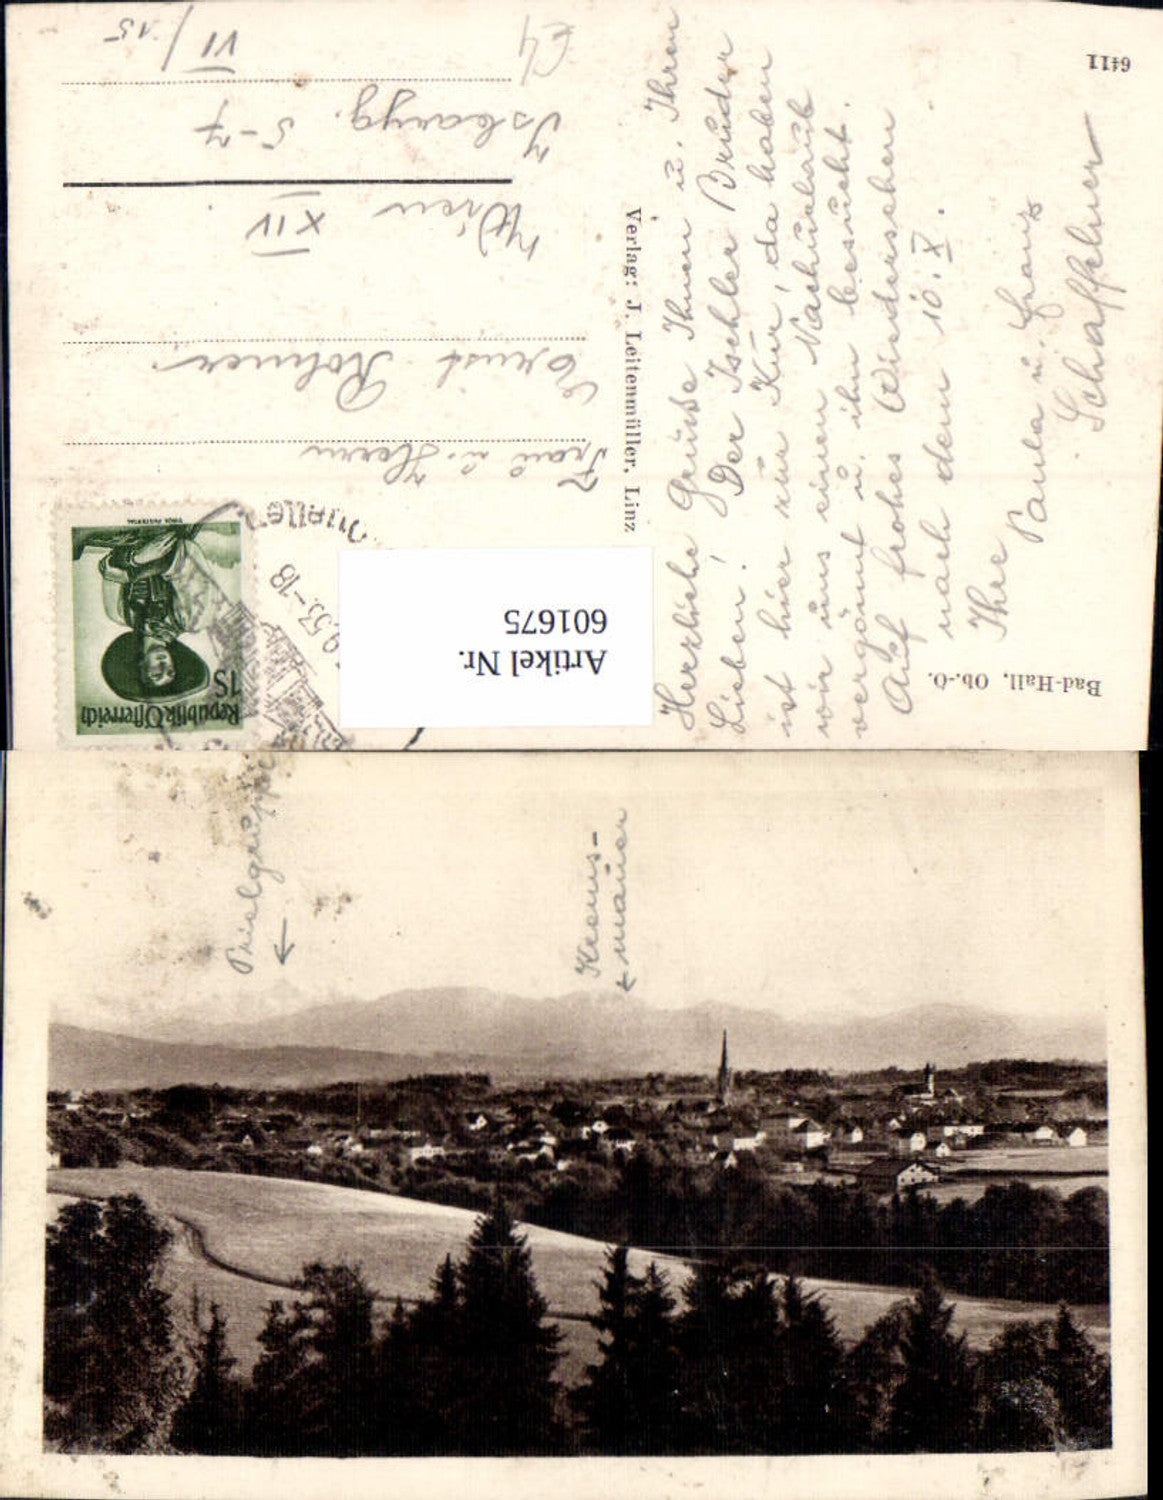 Bad-Hall, Ob.-Ö.
6411
Verlag: J. Leitenmüller, Linz
Herzliche Grüsse Ihnen u. Ihren
Lieben! Der Ischler Bruder
ist hier zur Kur, da haben
wir uns einen Nachurlaub
vergönnt u. ihn besucht.
Auf frohes Wiedersehen
nach dem 10. X.
Ihre
Paula u. Franz
Schaffelner
Republik Österreich
1S
9.53.-18
Frau u. Herrn
Ernst Rohmer
Wien XIV
Isbaryg. 5-7
VI/15
Artikel Nr.
601675
Prielgruppe
Krems-
mauer